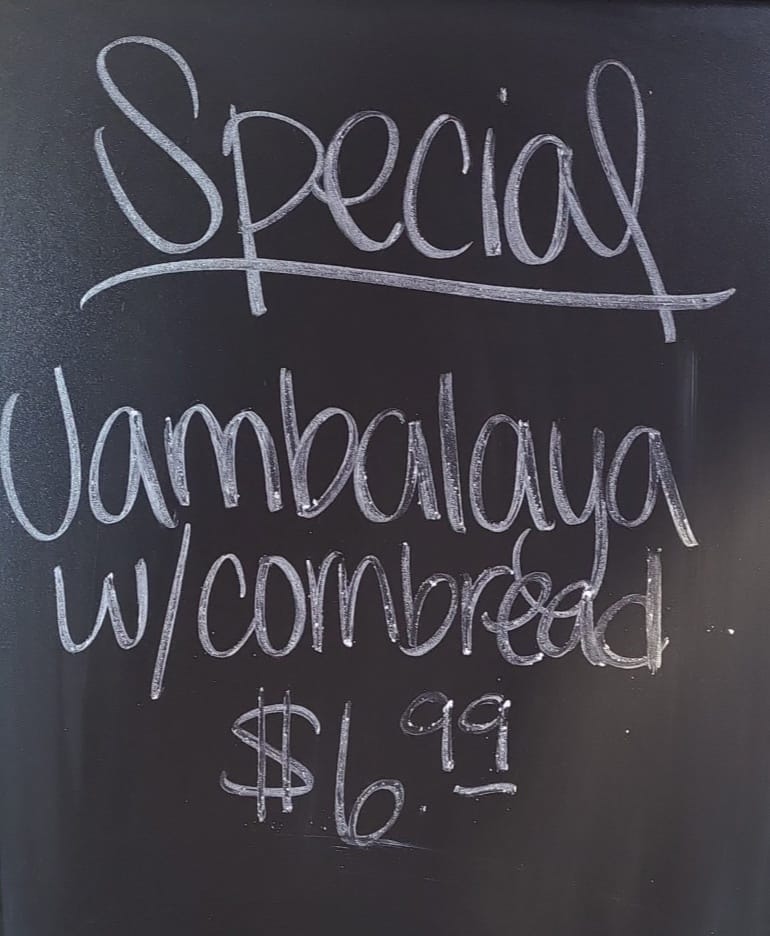 Special
Jambalaya
w/cornbread
$6.99